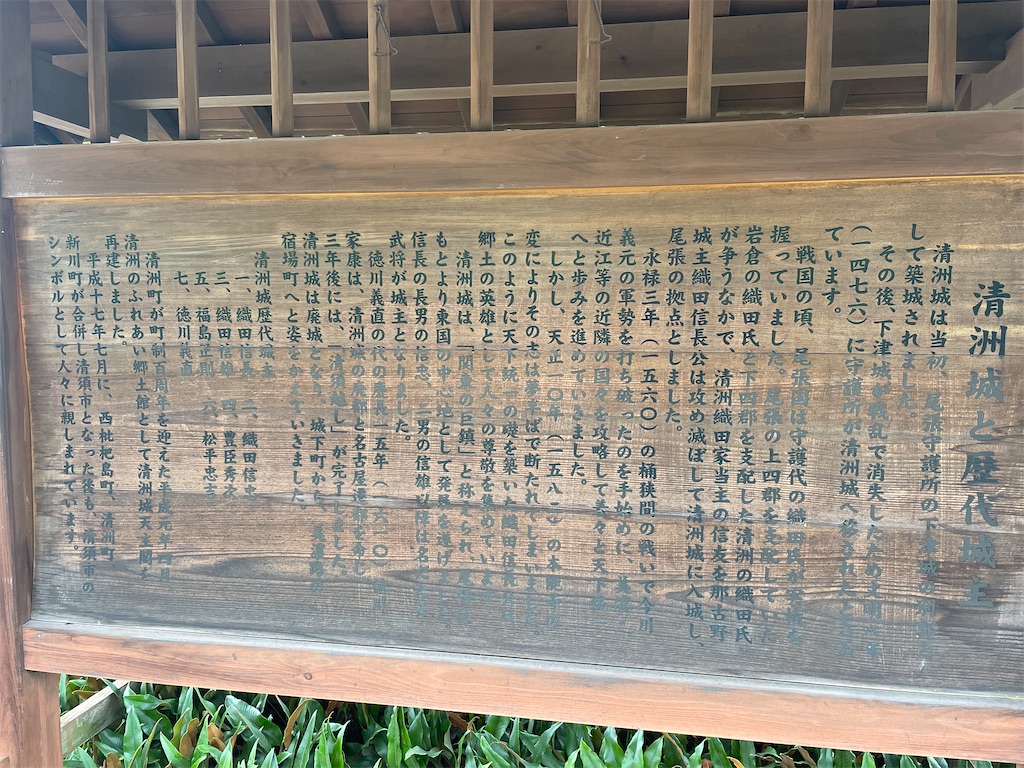 清洲城と歴代城主
清洲城は当初、尾張守護所の下津城の
して築城されました。
その後、下津城が戦乱で消失したため文明
(一四七六)に守護所が清洲城へ移されたと
ています。
戦国の頃、尾張国は守護代の織田氏が
握っていました。尾張の上四郡を支配していた
岩倉の織田氏と下四郡を支配した清洲の織田氏
が争うなかで、清洲織田家当主の信友を那古野
城主織田信長公は攻め滅ぼして清洲城に入城し、
尾張の拠点としました。
永禄三年(一五六〇)の桶狭間の戦いで今川
義元の軍勢を打ち破ったのを手始めに、美濃・
近江等の近隣の国々を攻略して着々と天下
へと歩みを進めていきました。
しかし、天正一〇年(一五八二)の本能寺の
変によりその志は夢半ばで断たれてしまいました。
このように天下統一の礎を築いた織田信長は
郷土の英雄として人々の尊敬を集めています。
清洲城は、「関東の巨鎮」と称えられ、尾張
もとより東国の中心地として発展を遂げ
信長の長男の信忠、二男の信雄以降は名だたる
武将が城主となりました。
徳川義直の代の慶長一五年(一六一〇)徳川
家康は、清洲城の廃都と名古屋遷都を命じ
三年後には、「清須越し」が完了しました。
清洲城は廃城となり、城下町から、美濃路の
宿場町へと姿をかえていきました。
清洲城歴代城主
一、織田信長 二、織田信忠
三、織田信雄 四、豊臣秀次
五、福島正則 六、松平忠吉
七、徳川義直
清洲町が町制百周年を迎えた平成元年四月
清洲のふれあい郷土館として清洲城天主閣を
再建しました。
平成十七年七月に、西枇杷島町、清洲町、
新川町が合併し清須市となった後も、清須市の
シンボルとして人々に親しまれています。